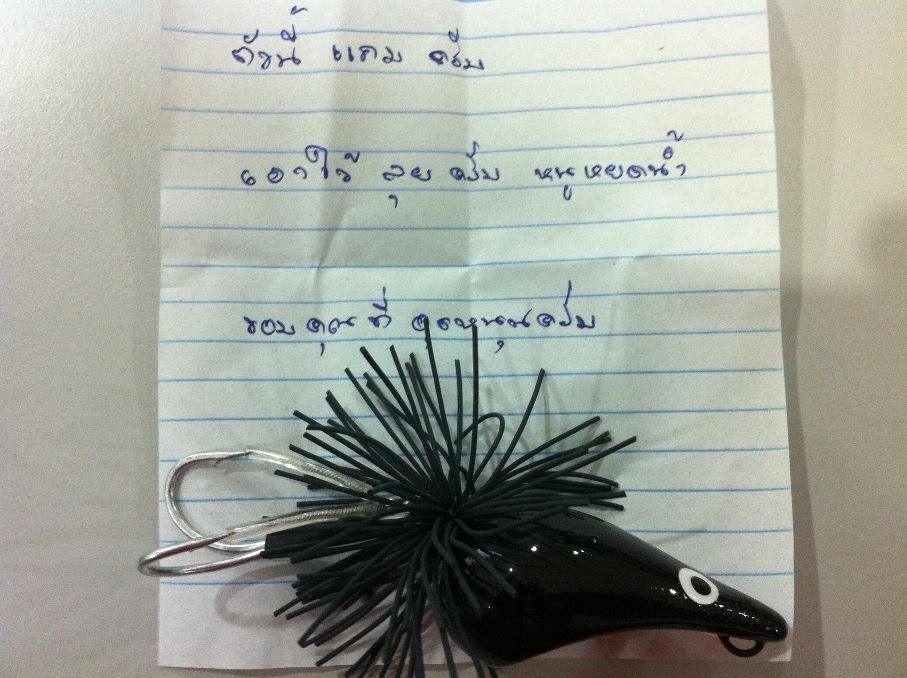 ตัวนี้ แถม ครับ
เอาไว้ ลุย ครับ หนูหยดน้ำ
ขอบคุณ ที่ อุดหนุนครับ